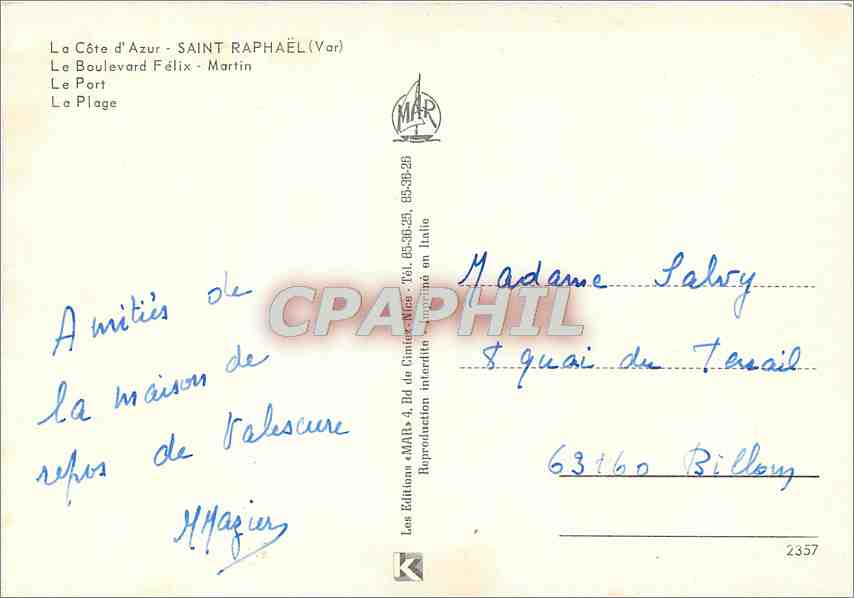 La Côte d'Azur - SAINT RAPHAËL (Var)
Le Boulevard Félix - Martin
Le Port
La Plage
MAR
Amitiés de
la maison de
repos de Valescure
MMazier
Les Editions «MAR» 4, Bd de Cimiez - Nice - Tél. 85-36-25, 85-36-26
Reproduction interdite - Imprimé en Italie
CPAPHIL
Madame Salvy
8 quai du Terrail
63160 Billom
2357
K